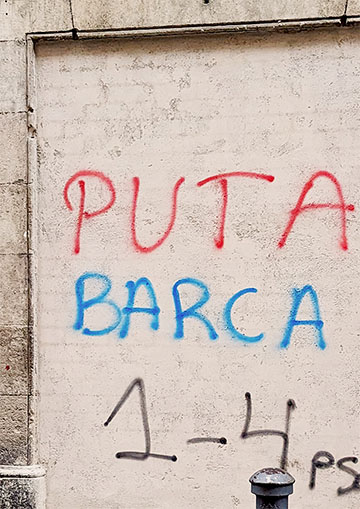 PUTA
BARCA
1-4
PS